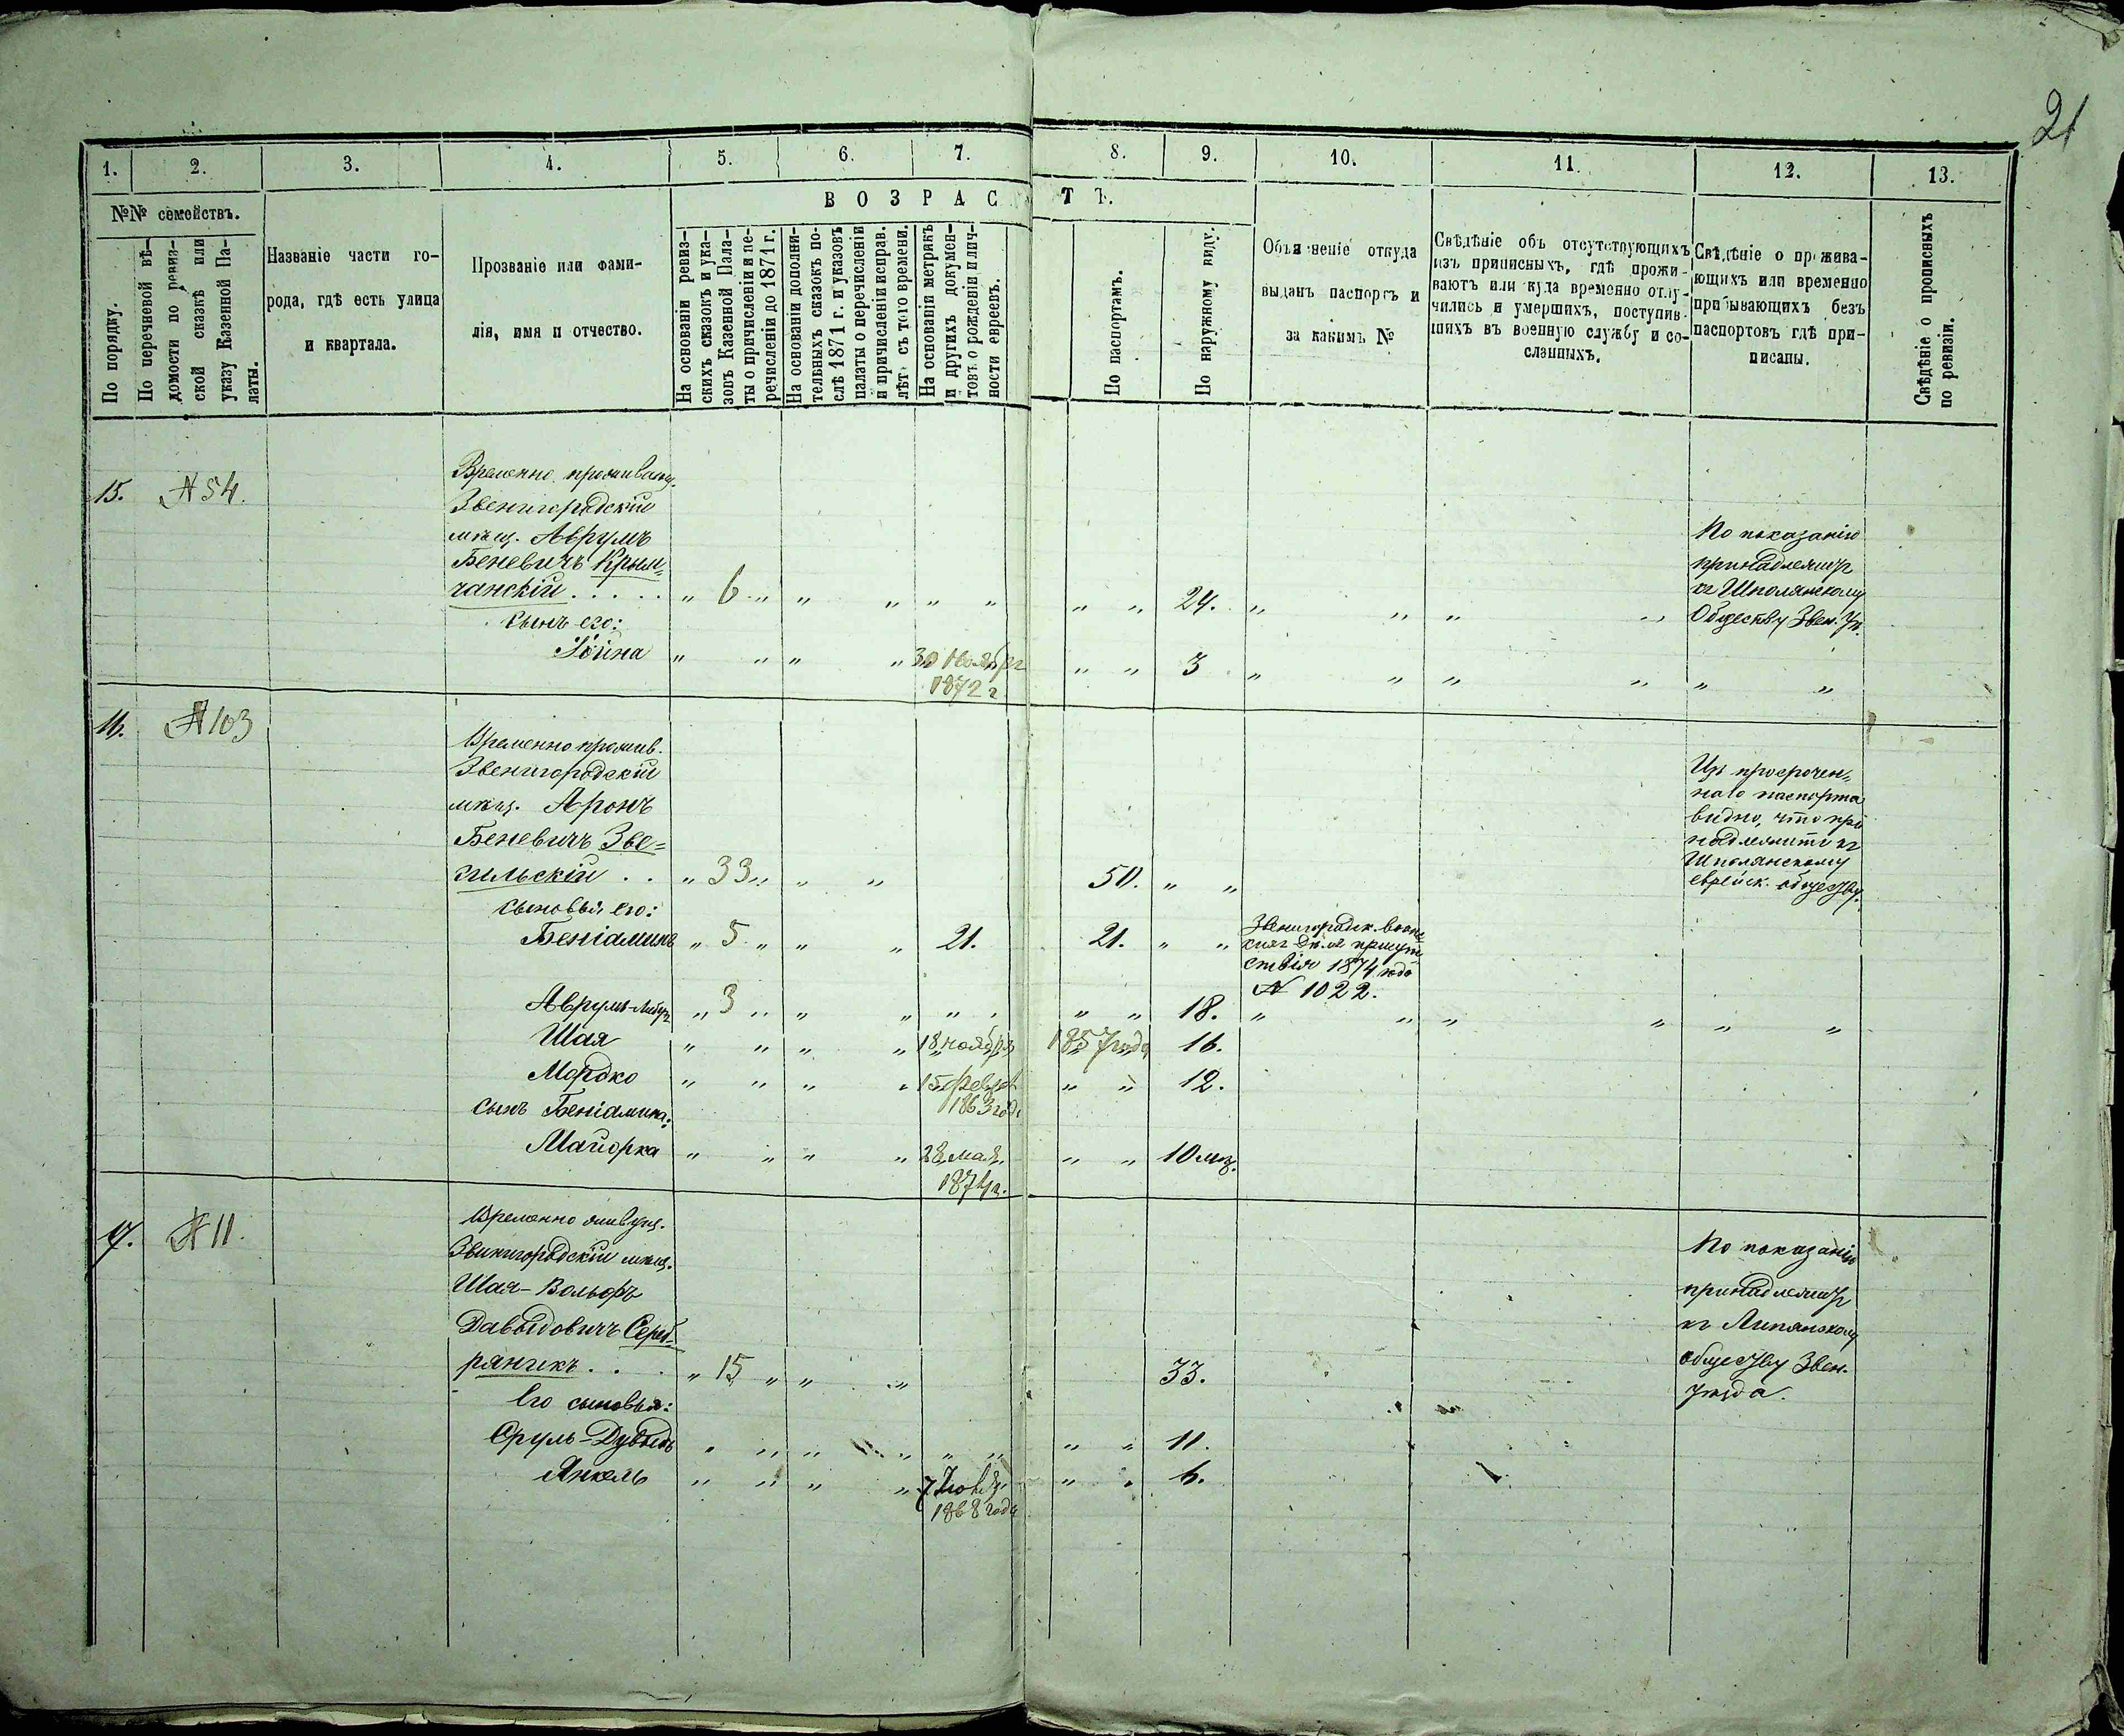 21
1. 2. 3. 4. 5. 6. 7. 8. 9. 10. 11. 12. 13.
№№ семействъ.
По порядку.
По перечневой вѣ-
домости по ревиз-
ской сказкѣ или
указу Казенной Па-
латы.
Названіе части го-
рода, гдѣ есть улица
и квартала.
Прозваніе или фами-
лія, имя и отчество.
ВОЗРАСТЪ.
На основаніи ревиз-
скихъ сказокъ и ука-
зовъ Казенной Пала-
ты о причисленіи и пе-
речисленіи до 1871 г.
На основаніи дополни-
тельныхъ сказокъ по-
слѣ 1871 г. и указовъ
палаты о перечисленіи
и причисленіи исправ.
лѣтъ съ того времени.
На основаніи метрикъ
и другихъ докумен-
товъ о рожденіи и лич-
ности евреевъ.
По паспортамъ.
По наружному виду.
Объясненіе откуда
выданъ паспортъ и
за какимъ №
Свѣдѣніе объ отсутствующихъ
изъ приписныхъ, гдѣ прожи-
ваютъ или куда временно отлу-
чились и умершихъ, поступив-
шихъ въ военную службу и со-
сланныхъ.
Свѣдѣніе о прожива-
ющихъ или временно
прибывающихъ безъ
паспортовъ гдѣ при-
писаны.
Свѣдѣніе о прописныхъ
по ревизіи.
15. № 54.
Временно проживающ.
Звенигородскій
мѣщ. Аврумъ
Беневичъ Крым=
чанскій . . . . . „ 6 „ „ „ „ „ „ „ 24. „ „ „ „
По показанію
принадлежитъ
къ Шполянскому
Обществу Звен. Уѣ.
сынъ его:
Іойна „ „ „ „ 30 Ноября „ „ 3 „ „ „ „ „ „
1872 г
16. № 103
Временно прожив.
Звенигородскій
мѣщ. Аронъ
Беневичъ Зве=
гильскій . . „ 33 „ „ „ 50. „ „
Изъ просрочен=
наго паспорта
видно, что при
надлежитъ къ
Шполянскому
еврейск. обществу.
сыновья его:
Беніаминъ „ 5 „ „ „ 21. 21. „ „
Звенигородск.
ствія 1874 года
№ 1022.
Аврумъ- „ 3 „ „ „ „ „ „ 18. „ „ „ „ „ „
Шая „ „ „ „ 18 ноября 1857 года 16.
Мордко „ „ „ „ 15 февр. „ „ 12.
1863 год
сынъ Беніамина:
Майорка „ „ „ „ 28 мая „ „ 10 мѣ.
1874 г.
17. № 11.
Временно живущ.
Звенигородскій мѣщ.
Шая-Вольфъ
Давыдовичъ Сереб=
ряникъ . . . „ 15 „ „ „ 33.
По показанію
принадлежитъ
къ Липянскому
обществу Звен.
уѣзда.
Его сыновья:
Сруль-Дувыдъ „ „ „ „ „ „ „ „ 11.
Янкель „ „ „ „ 7 „ „ 6.
1868 года